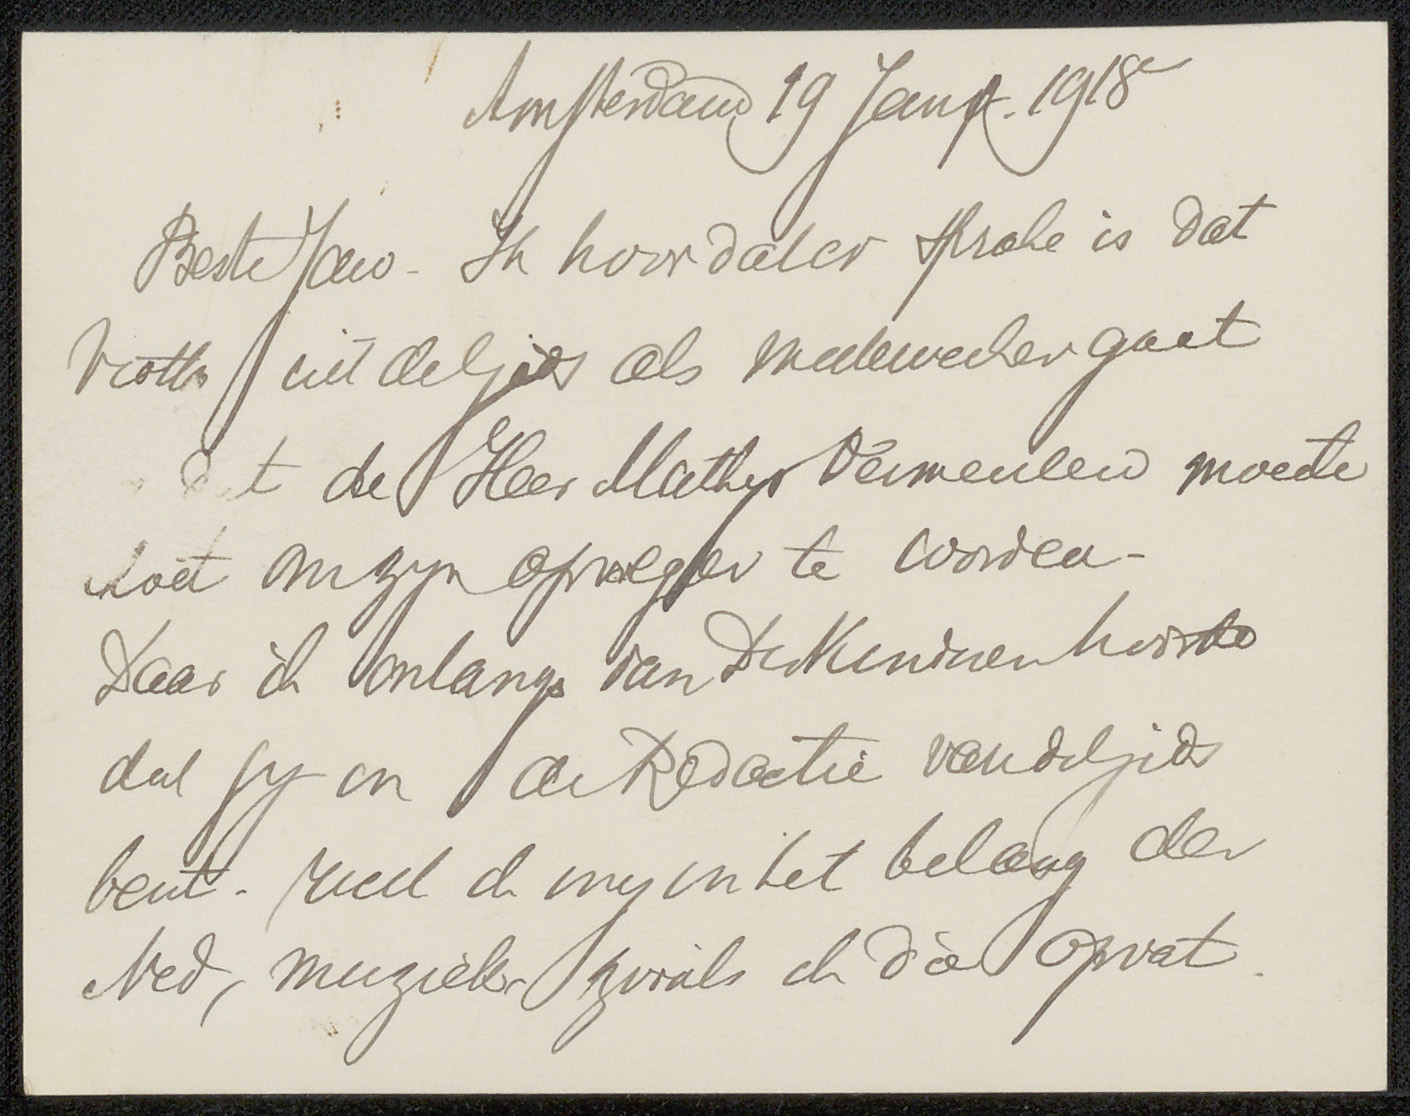 Amsterdam 19 Jany. 1918
Beste Jan - Ik hoor dat er sprake is dat
Viotta uit de Gids als medewerker gaat
dat de Heer Mathys Vermeulen moeite
doet om zyn opvolger te worden -
Daar ik onlangs van Derkinderen hoorde
dat gy in de Redactie van de Gids
bent. richt ik my in het belang der
Ned, muziek - zooals ik die opvat.